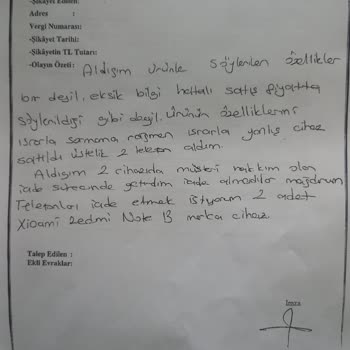 -Şikayet Edilen:
Adres :
Vergi Numarası:
-Şikayet Tarihi:
-Şikayetin TL Tutarı:
-Olayın Özeti: Aldığım ürünle söylenilen özellikler
bir değil, eksik bilgi hattalı satış fiyatta
söylenildiği gibi değil. Ürünün özelliklerini
ısrarla sormama rağmen ısrarla yanlış cihaz
satıldı üstelik 2 telefon aldım.
Aldığım 2 cihazıda müşteri hakkım olan
iade süresinde getirdim iade almadılar mağdurum
Telefonları iade etmek istiyorum 2 adet
Xioami Redmi Note 13 marka cihaz.
Talep Edilen :
Ekli Evraklar:
İmza